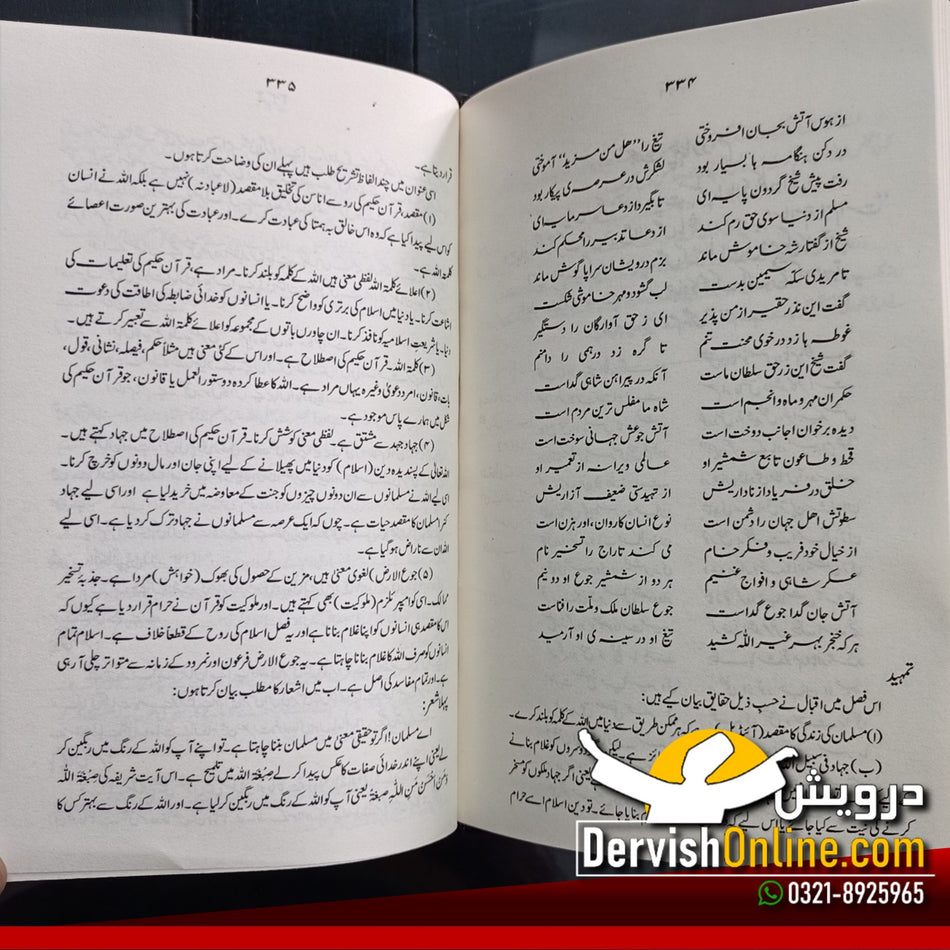 ۳۳۴
از ہوس آتش بجان افروختی تیغ را ”ھل من مزید“ آموختی
در دکن ہنگامہ ہا بسیار بود لشکرش در عرصہ ی پیکار بود
رفت پیش شیخ گردون پایہ ای تا بگیرد از دعا سرمایہ ای
مسلم از دنیا سوی حق رم کند از دعا تدبیر را محکم کند
شیخ از گفتار شہ خاموش ماند بزم درویشان سراپا گوش ماند
تا مریدی سکہ سیمین بدست لب گشود و مہر خاموشی شکست
گفت این نذر حقیر از من پذیر ای ز حق آوارگان را دستگیر
غوطہ ہا زد در خوی محنت تنم تا گرہ زد درہمی را دامنم
گفت شیخ این زر حق سلطان ماست آنکہ در پیراہن شاہی گداست
حکمران مہر و ماہ و انجم است شاہ ما مفلس ترین مردم است
دیدہ برخوان اجانب دوخت است آتش جوعش جہانی سوخت است
قحط و طاعون تابع شمشیر او عالمی ویرانہ از تعمیر او
خلق در فریاد از ناداریش از تہیدستی ضعیف آزاریش
سطوتش اھل جہان را دشمن است نوع انسان کاروان، او رہزن است
از خیال خود فریب و فکر خام می کند تاراج را تسخیر نام
عسکر شاہی و افواج غنیم ہر دو از شمشیر جوع او دو نیم
آتش جان گدا جوع گداست جوع سلطان ملک و ملت را فناست
ہر کہ خنجر بہر غیر اللہ کشید تیغ او در سینہ ی او آرمید
تمہید
اس فصل میں اقبال نے حسب ذیل حقایق بیان کیے ہیں:
(۱) مسلمان کی زندگی کا مقصد (آئیڈیل) ہے کہ ہر ممکن طریق سے دنیا میں اللہ کے کلمہ کو بلند کرے۔
(ب) جہاد فی سبیل ائز ہے لیکن دوسروں کو غلام بنانے
یعنی اگر جہاد ملکوں کو مسخر
کرنے کی نیت سے کیا جائے یا اس لیے بنایا جائے۔ تو دین اسلام اسے حرام
۳۳۵
قرار دیتا ہے۔
اسی عنوان میں چند الفاظ تشریح طلب ہیں پہلے ان کی وضاحت کرتا ہوں۔
(۱) مقصد، قرآن حکیم کی رو سے اناسن کی تخلیق بلا مقصد (لا عبادنہ) نہیں ہے بلکہ اللہ نے انسان
کو اس لیے پیدا کیا ہے کہ وہ اس خالق بے ہمتا کی عبادت کرے۔ اور عبادت کی بہترین صورت اعصائے
کلمۃ اللہ ہے۔
(۲) اعلائے کلمۃ اللہ لفظی معنی ہیں اللہ کے کلمہ کو بلند کرنا۔ مراد ہے، قرآن حکیم کی تعلیمات کی
اشاعت کرنا۔ یا دنیا میں اسلام کی برتری کو واضح کرنا۔ یا انسانوں کو خدائی ضابطہ کی اطاقت کی دعوت
دینا۔ یا شریعت اسلامیہ کو نافذ کرنا۔ ان چاورں باتوں کے مجموعہ کو اعلائے کلمۃ اللہ سے تعبیر کرتے ہیں۔
(۳) کلمۃ اللہ۔ قرآن حکیم کی اصطلاح ہے۔ اور اس کے کئی معنی ہیں مثلاً حکم، فیصلہ، نشانی، قول،
بات، قانون، امر، دعویٰ وغیرہ یہاں مراد ہے۔ اللہ کا عطا کردہ دستور العمل یا قانون، جو قرآن حکیم کی
شکل میں ہمارے پاس موجود ہے۔
(۴) جہاد جہد سے مشتق ہے۔ لفظی معنی کوشش کرنا۔ قرآن حکیم کی اصطلاح میں جہاد کہتے ہیں۔
اللہ تعالی کے پسندیدہ دین (اسلام) کو دنیا میں پھیلانے کے لیے اپنی جان اور مال دونوں کو خرچ کرنا۔
اسی لیے اللہ نے مسلمانوں سے ان دونوں چیزوں کو جنت کے معاوضہ میں خرید لیا ہے اور اسی لیے جہاد
کرنا مسلمان کا مقصد حیات ہے۔ چوں کہ ایک عرصہ سے مسلمانوں نے جہاد ترک کر دیا ہے۔ اسی لیے
اللہ ان سے ناراض ہو گیا ہے۔
(۵) جوع الارض) لغوی معنی ہیں، مزین کے حصول کی بھوک (خواہش) مردا ہے۔ جذبۂ تسخیر
ممالک۔ اسی کو امپیریلزم (ملوکیت) بھی کہتے ہیں۔ اور ملوکیت کو قرآن نے حرام قرار دیا ہے کیوں کہ
اس کا مقصد ہی انسانوں کو اپنا غلام بنانا ہے اور یہ فصل اسلام کی روح کے قطعاً خلاف ہے۔ اسلام تمام
انسانوں کو صرف اللہ کا غلام بنانا چاہتا ہے۔ یہ جوع الارض فرعون اور نمرود کے زمانہ سے متواتر چلی آ رہی
ہے۔ اور تمام مفاسد کی اصل ہے۔ اب میں اشعار کا مطلب بیان کرتا ہوں:
پہلا شعر:
اے مسلمان! اگر تو حقیقی معنی میں مسلمان بننا چاہتا ہے۔ تو اپنے آپ کو اللہ کے رنگ میں رنگین کر
لے یعنی اپنے اندر خدائی صفات کا عکس پیدا کر لے صبغۃ اللہ میں تلمیح ہے۔ اس آیت شریفہ کی صِبْغَۃَ اللّٰہ
وَمَنْ اَحْسَنُ مِنَ اللّٰہِ صِبْغَۃً یعنی آپ کو اللہ کے رنگ میں رنگین کر لیا ہے۔ اور اللہ کے رنگ سے بہتر کس کا
درویش
DervishOnline.com
0321-8925965